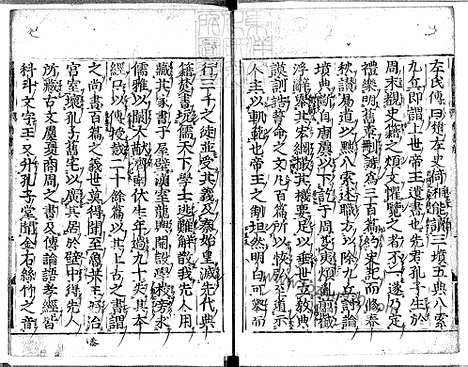 左氏傳曰楚左史倚相能讀三墳五典八索
九丘即謂上世帝王遺書也先君孔子生於
周末覩史籍之煩文懼覽之者不一遂乃定
禮樂明舊章刪詩爲三百篇約史記而修春
秋讃易道以黜八索述職方以除九丘討論
墳典斷自唐虞以下訖于周芟夷煩亂翦截
浮辭舉其宏綱撮其機要足以垂世立教典
謨訓誥誓命之文凡百篇所以恢弘至道示
人主以軌範也帝王之制坦然明白可舉而
行三千之徒並受其義及秦始皇滅先代典
籍焚書坑儒天下學士逃難解散我先人用
藏其家書于屋壁漢室龍興開設學校旁求
儒雅以闡大猷濟南伏生年過九十失其本
經口以傳授裁二十餘篇以其上古之書謂
之尚書百篇之義世莫得聞至魯共王好治
宮室壞孔子舊宅以廣其居於壁中得先人
所藏古文虞夏商周之書及傳論語孝經皆
科斗文字王又升孔子堂聞金石絲竹之音